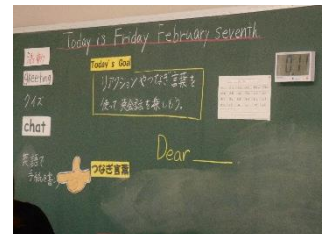 Today is Friday February seventh.
活動
Greeting
クイズ
chat
英語で
手紙を書こう
Today's Goal
リアクションやつなぎ言葉を
使って英会話を楽しもう。
つなぎ言葉
Dear